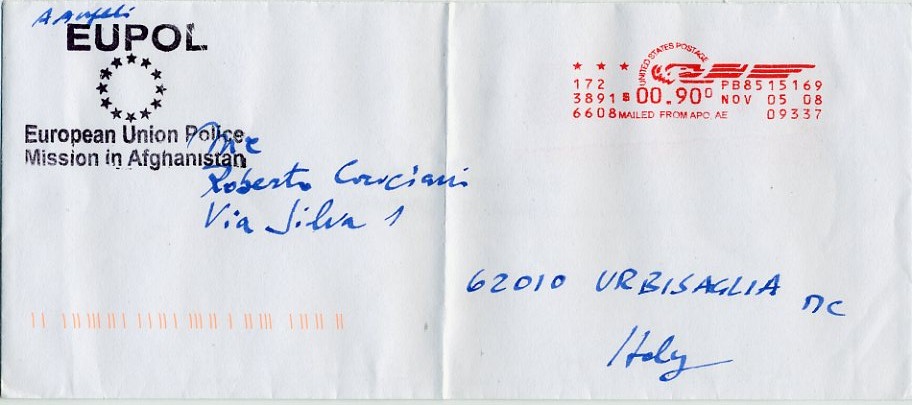 A Angeli
EUPOL
European Union Police
Mission in Afghanistan
UNITED STATES POSTAGE
172 PB8515169
3891 $00.90⁰ NOV 05 08
6608 MAILED FROM APO, AE 09337
Roberto Cruciani
Via Silva 1
62010 URBISAGLIA MC
Italy